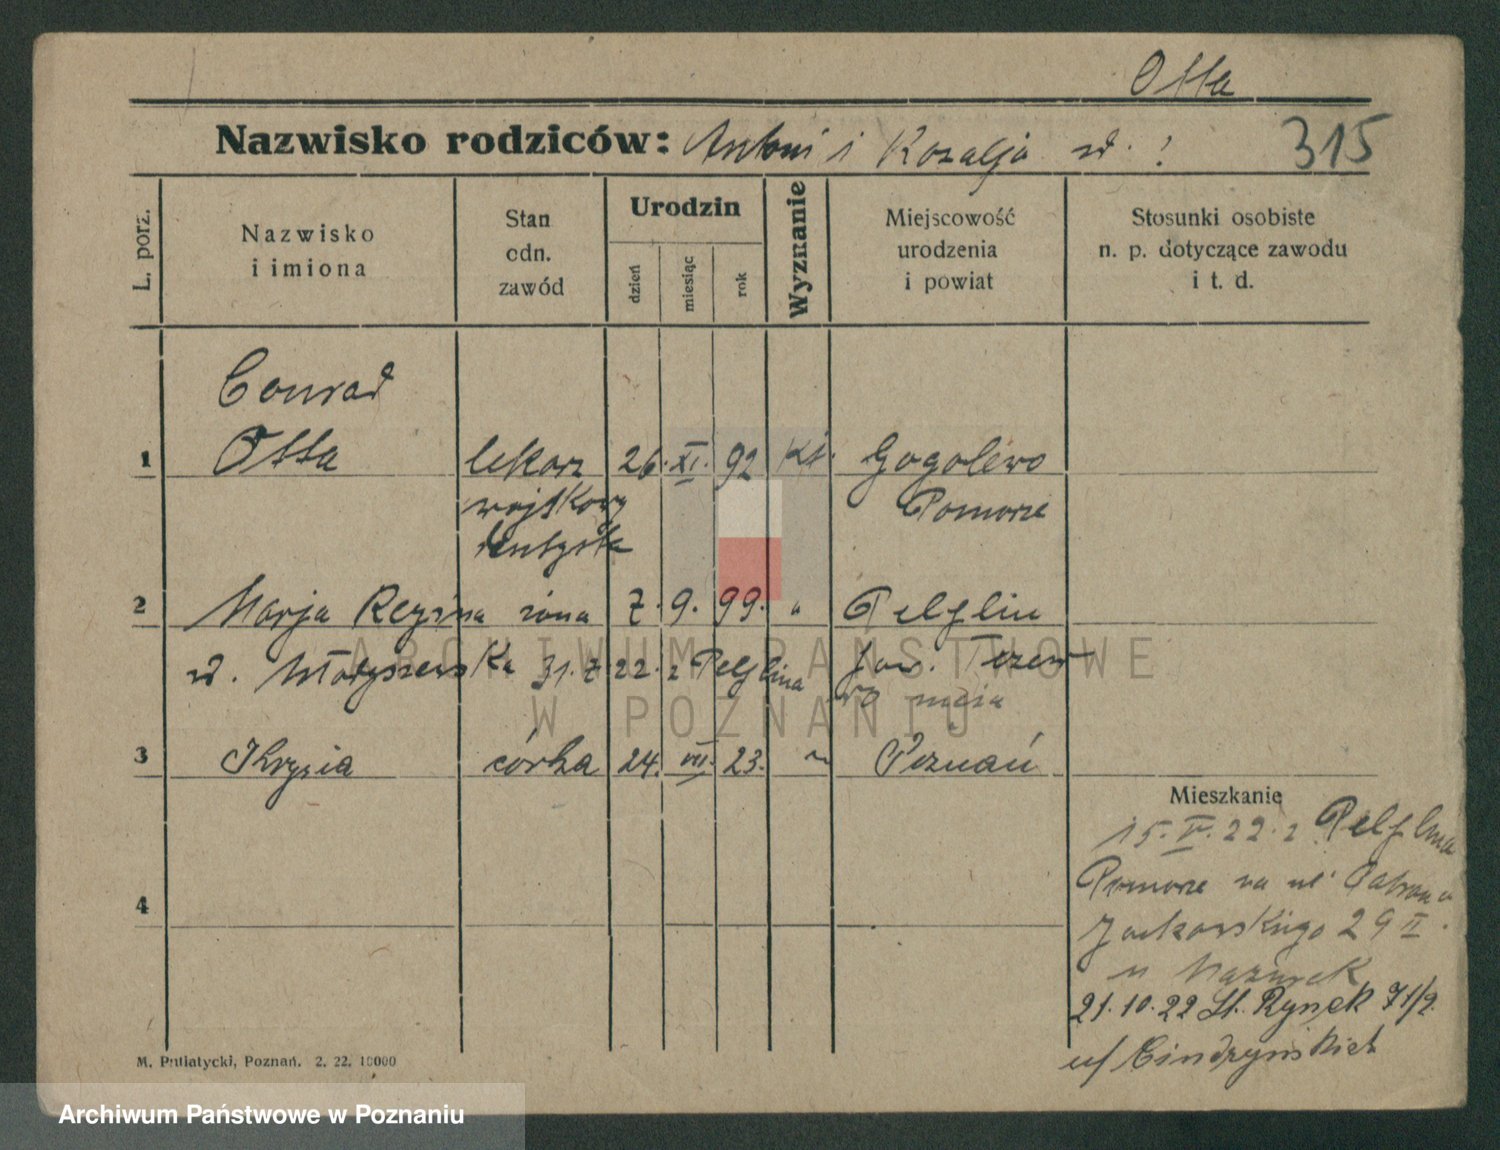 Otta
Nazwisko rodziców: Antoni i Rozalja zd. ?
315
L. porz.
Nazwisko
i imiona
Stan
odn.
zawód
Urodzin
dzień
miesiąc
rok
Wyznanie
Miejscowość
urodzenia
i powiat
Stosunki osobiste
n. p. dotyczące zawodu
i t. d.
Conrad
1 Otta lekarz 26. XI. 92 kt. Gogolewo
wojskowy Pomorze
dentysta
2 Marja Regina żona 7. 9. 99. " Pelplin
zd. 31.7.22. z Pelplina pow. Tczew
ARCHIWUM PAŃSTWOWE
W POZNANIU
3 Kryzia córka 24. VII. 23. " Poznań
Mieszkanie
15. V. 22. z Pelplina
Pomorze na ul. Patrona
Jackowskiego 29 II.
u Mazurek
21.10.22 St. Rynek 71/2.
u/
4
M. Putiatycki, Poznań. 2. 22. 10000
Archiwum Państwowe w Poznaniu